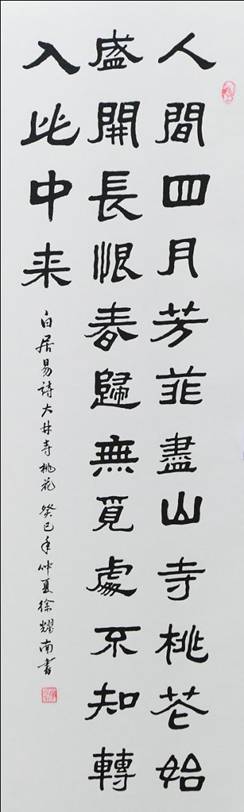 人間四月芳菲盡山寺桃花始
盛開長恨春歸無覓處不知轉
入此中来
白居易詩大林寺桃花 癸巳年仲夏徐耀南書